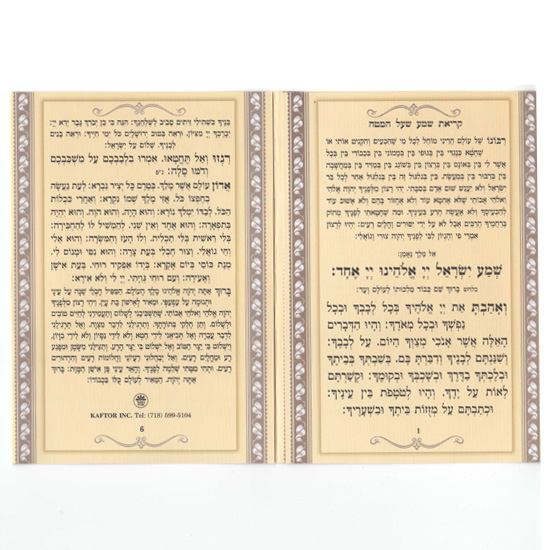 קריאת שמע שעל המטה
רבונו של עולם הריני מוחל לכל מי שהכעיס והקניט אותי או
שחטא כנגדי בין בגופי בין בממוני בין בכבודי בין בכל
אשר לי בין באונס בין ברצון בין בשוגג בין במזיד בין במחשבה
בין בדבור בין במעשה, בין בגלגול זה בין בגלגול אחר לכל בר
ישראל ולא יענש שום אדם בסבתי. יהי רצון מלפניך יהוה אלהי
ואלהי אבותי שלא אחטא עוד ולא אחזור בהם ולא אשוב עוד
להכעיסך ולא אעשה הרע בעיניך. ומה שחטאתי לפניך מחוק
ברחמיך הרבים אבל לא על ידי יסורים וחלים רעים: יהיו לרצון
אמרי פי והגיון לבי לפניך יהוה צורי וגואלי:
אל מלך נאמן:
שְׁמַע יִשְׂרָאֵל יְיָ אֱלֹהֵינוּ יְיָ אֶחָד:
בלחש ברוך שם כבוד מלכותו לעולם ועד:
וְאָהַבְתָּ אֵת יְיָ אֱלֹהֶיךָ בְּכָל לְבָבְךָ וּבְכָל
נַפְשְׁךָ וּבְכָל מְאֹדֶךָ: וְהָיוּ הַדְּבָרִים
הָאֵלֶּה אֲשֶׁר אָנֹכִי מְצַוְּךָ הַיּוֹם, עַל לְבָבֶךָ:
וְשִׁנַּנְתָּם לְבָנֶיךָ וְדִבַּרְתָּ בָּם, בְּשִׁבְתְּךָ בְּבֵיתֶךָ
וּבְלֶכְתְּךָ בַדֶּרֶךְ וּבְשָׁכְבְּךָ וּבְקוּמֶךָ: וּקְשַׁרְתָּם
לְאוֹת עַל יָדֶךָ, וְהָיוּ לְטֹטָפֹת בֵּין עֵינֶיךָ:
וּכְתַבְתָּם עַל מְזֻזוֹת בֵּיתֶךָ וּבִשְׁעָרֶיךָ:
1
בניך כשתילי זיתים סביב לשלחנך: הנה כי כן יברך גבר ירא יי:
יברכך יי מציון, וראה בטוב ירושלים כל ימי חייך: וראה בנים
לבניך, שלום על ישראל:
רִגְזוּ וְאַל תֶּחֱטָאוּ, אִמְרוּ בִלְבַבְכֶם עַל מִשְׁכַּבְכֶם
וְדֹמּוּ סֶלָה: ג״פ
אדון עולם אשר מלך, בטרם כל יציר נברא: לעת נעשה
בחפצו כל, אזי מלך שמו נקרא: ואחרי ככלות
הכל, לבדו ימלוך נורא: והוא היה, והוא הוה, והוא יהיה
בתפארה: והוא אחד ואין שני, להמשיל לו להחבירה:
בלי ראשית בלי תכלית, ולו העז והמשרה: והוא אלי
וחי גואלי, וצור חבלי בעת צרה: והוא נסי ומנוס לי,
מנת כוסי ביום אקרא: בידו אפקיד רוחי, בעת אישן
ואעירה: ועם רוחי גויתי, יי לי ולא אירא:
ברוך אתה יהוה אלהינו מלך העולם, המפיל חבלי שנה על עיני
ותנומה על עפעפי, ומאיר לאישון בת עין. ויהי רצון מלפניך
יהוה אלהי ואלהי אבותי, שתשכיבני לשלום ותעמידני לחיים טובים
ולשלום,
KAFTOR INC. Tel: (718) 599-5104
6